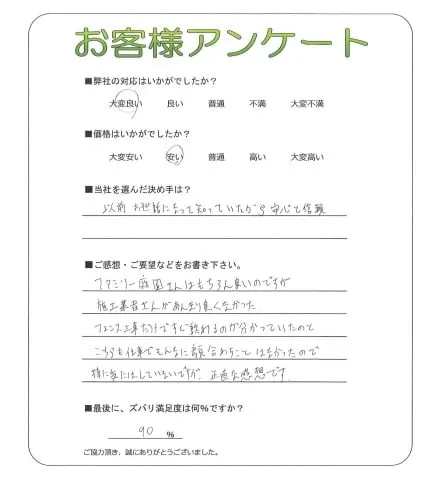 お客様アンケート
■弊社の対応はいかがでしたか?
大変良い 良い 普通 不満 大変不満
■価格はいかがでしたか?
大変安い 安い 普通 高い 大変高い
■当社を選んだ決め手は?
以前 お世話になって知っていたから 安心と信頼
■ご感想・ご要望などをお書き下さい。
ファミリー庭園さんはもちろん良いのですが
施工業者さんがあんまり良くなかった
フェンス工事だけですぐ終わるのが分かっていたのと
こちらも仕事でそんなに顔合わすことはなかったので
特に気にはしていないですが、正直な感想です
■最後に、ズバリ満足度は何%ですか?
90 %
ご協力頂き、誠にありがとうございました。